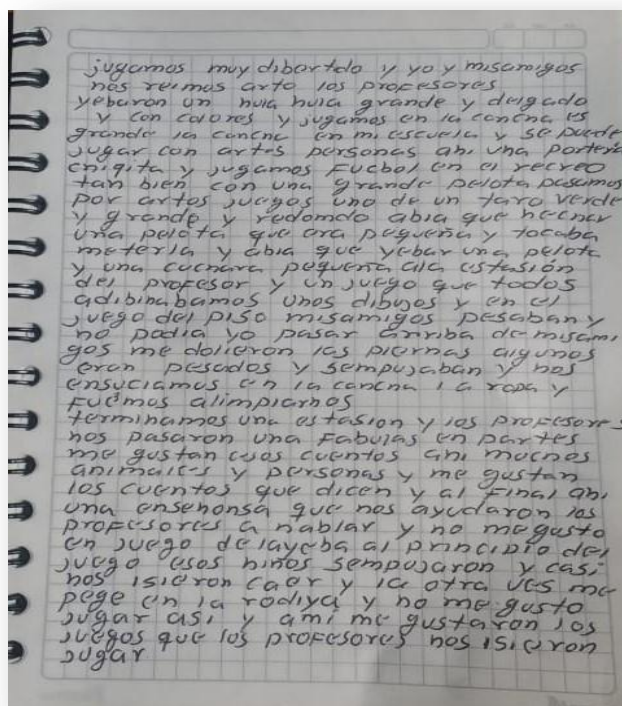 jugamos muy dibortdo y yo y misamigos
nos reimos arto los profesores
yebaron un hula hula grande y delgado
y con colores y jugamos en la cancha es
grande la cancha en mi escuela y se puede
jugar con artas personas ahi una porteria
chiqita y jugamos Fucbol en el recreo
tan bien con una grande pelota pasamos
por artos juegos uno de un taro verde
y grande y redomdo abia que hechar
una pelota que era pequeña y tocaba
meterla y abia que yebar una pelota
y una cuchara pequeña ala estasión
del profesor y un juego que todos
adibinabamos unos dibujos y en el
juego del piso misamigos pesaban y
no podia yo pasar arriba de misami
gos me dolieron las piernas algunos
eran pesados y sempujaban y nos
ensuciamos en la cancha la ropa y
Fuemos alimpiarnos
terminamos una estasion y los profesores
nos pasaron una Fabulas en partes
me gustan esos cuentos ahi muchos
animales y personas y me gustan
los cuentos que dicen y al Final ahi
una ensehonsa que nos ayudaron los
profesores a hablar y no megusto
en juego delayeba al principio del
juego esos niños sempujaron y casi
nos isieron caer y la otra ves me
pege en la rodiya y no me gusto
jugar asi y ami me gustaron los
juegos que los profesores nos isieron
jugar